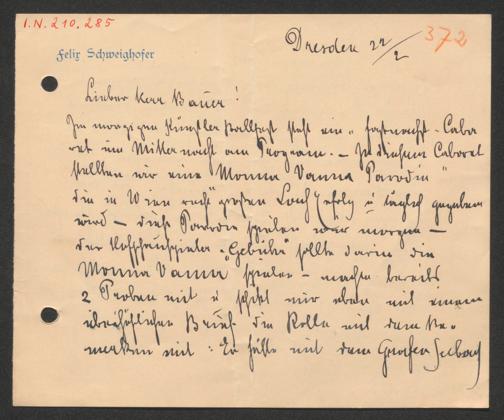 I.N. 210.285
Felix Schweighofer
Dresden 22/2
372
Lieber Herr Bauer!
Im morgigen Künstler Ballfest steht ein „Fastnacht-Caba
ret um Mitternacht am Program. – In diesem Cabaret
stellten wir eine Monna Vanna Parodie"
die in Wien sehr großen Lach Erfolg u täglich gegeben
wird – diese Parodie spielen wir morgen –
der Hofschauspieler „Gebühr" sollte darin die
Monna Vanna spielen – machte bereits
2 Proben mit u schickt mir eben mit einem
unhöflichen Brief die Rolle mit dem Be-
merken mit: Er hätte mit dem Grafen Seebach